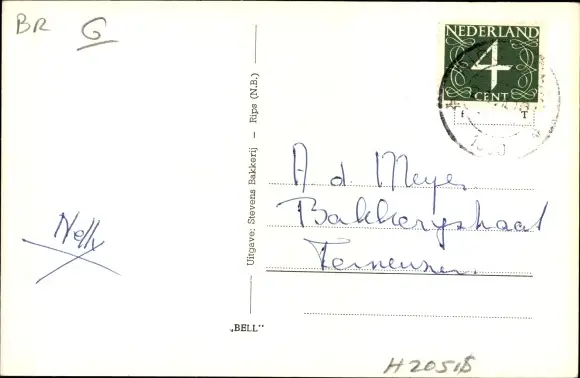 BR G
NEDERLAND
4
CENT
Uitgave: Stevens Bakkerij — Rips (N.B.)
A d. Meyer
Bakkerystraat
Terneuzen.
Nelly
„BELL"
H 2051$